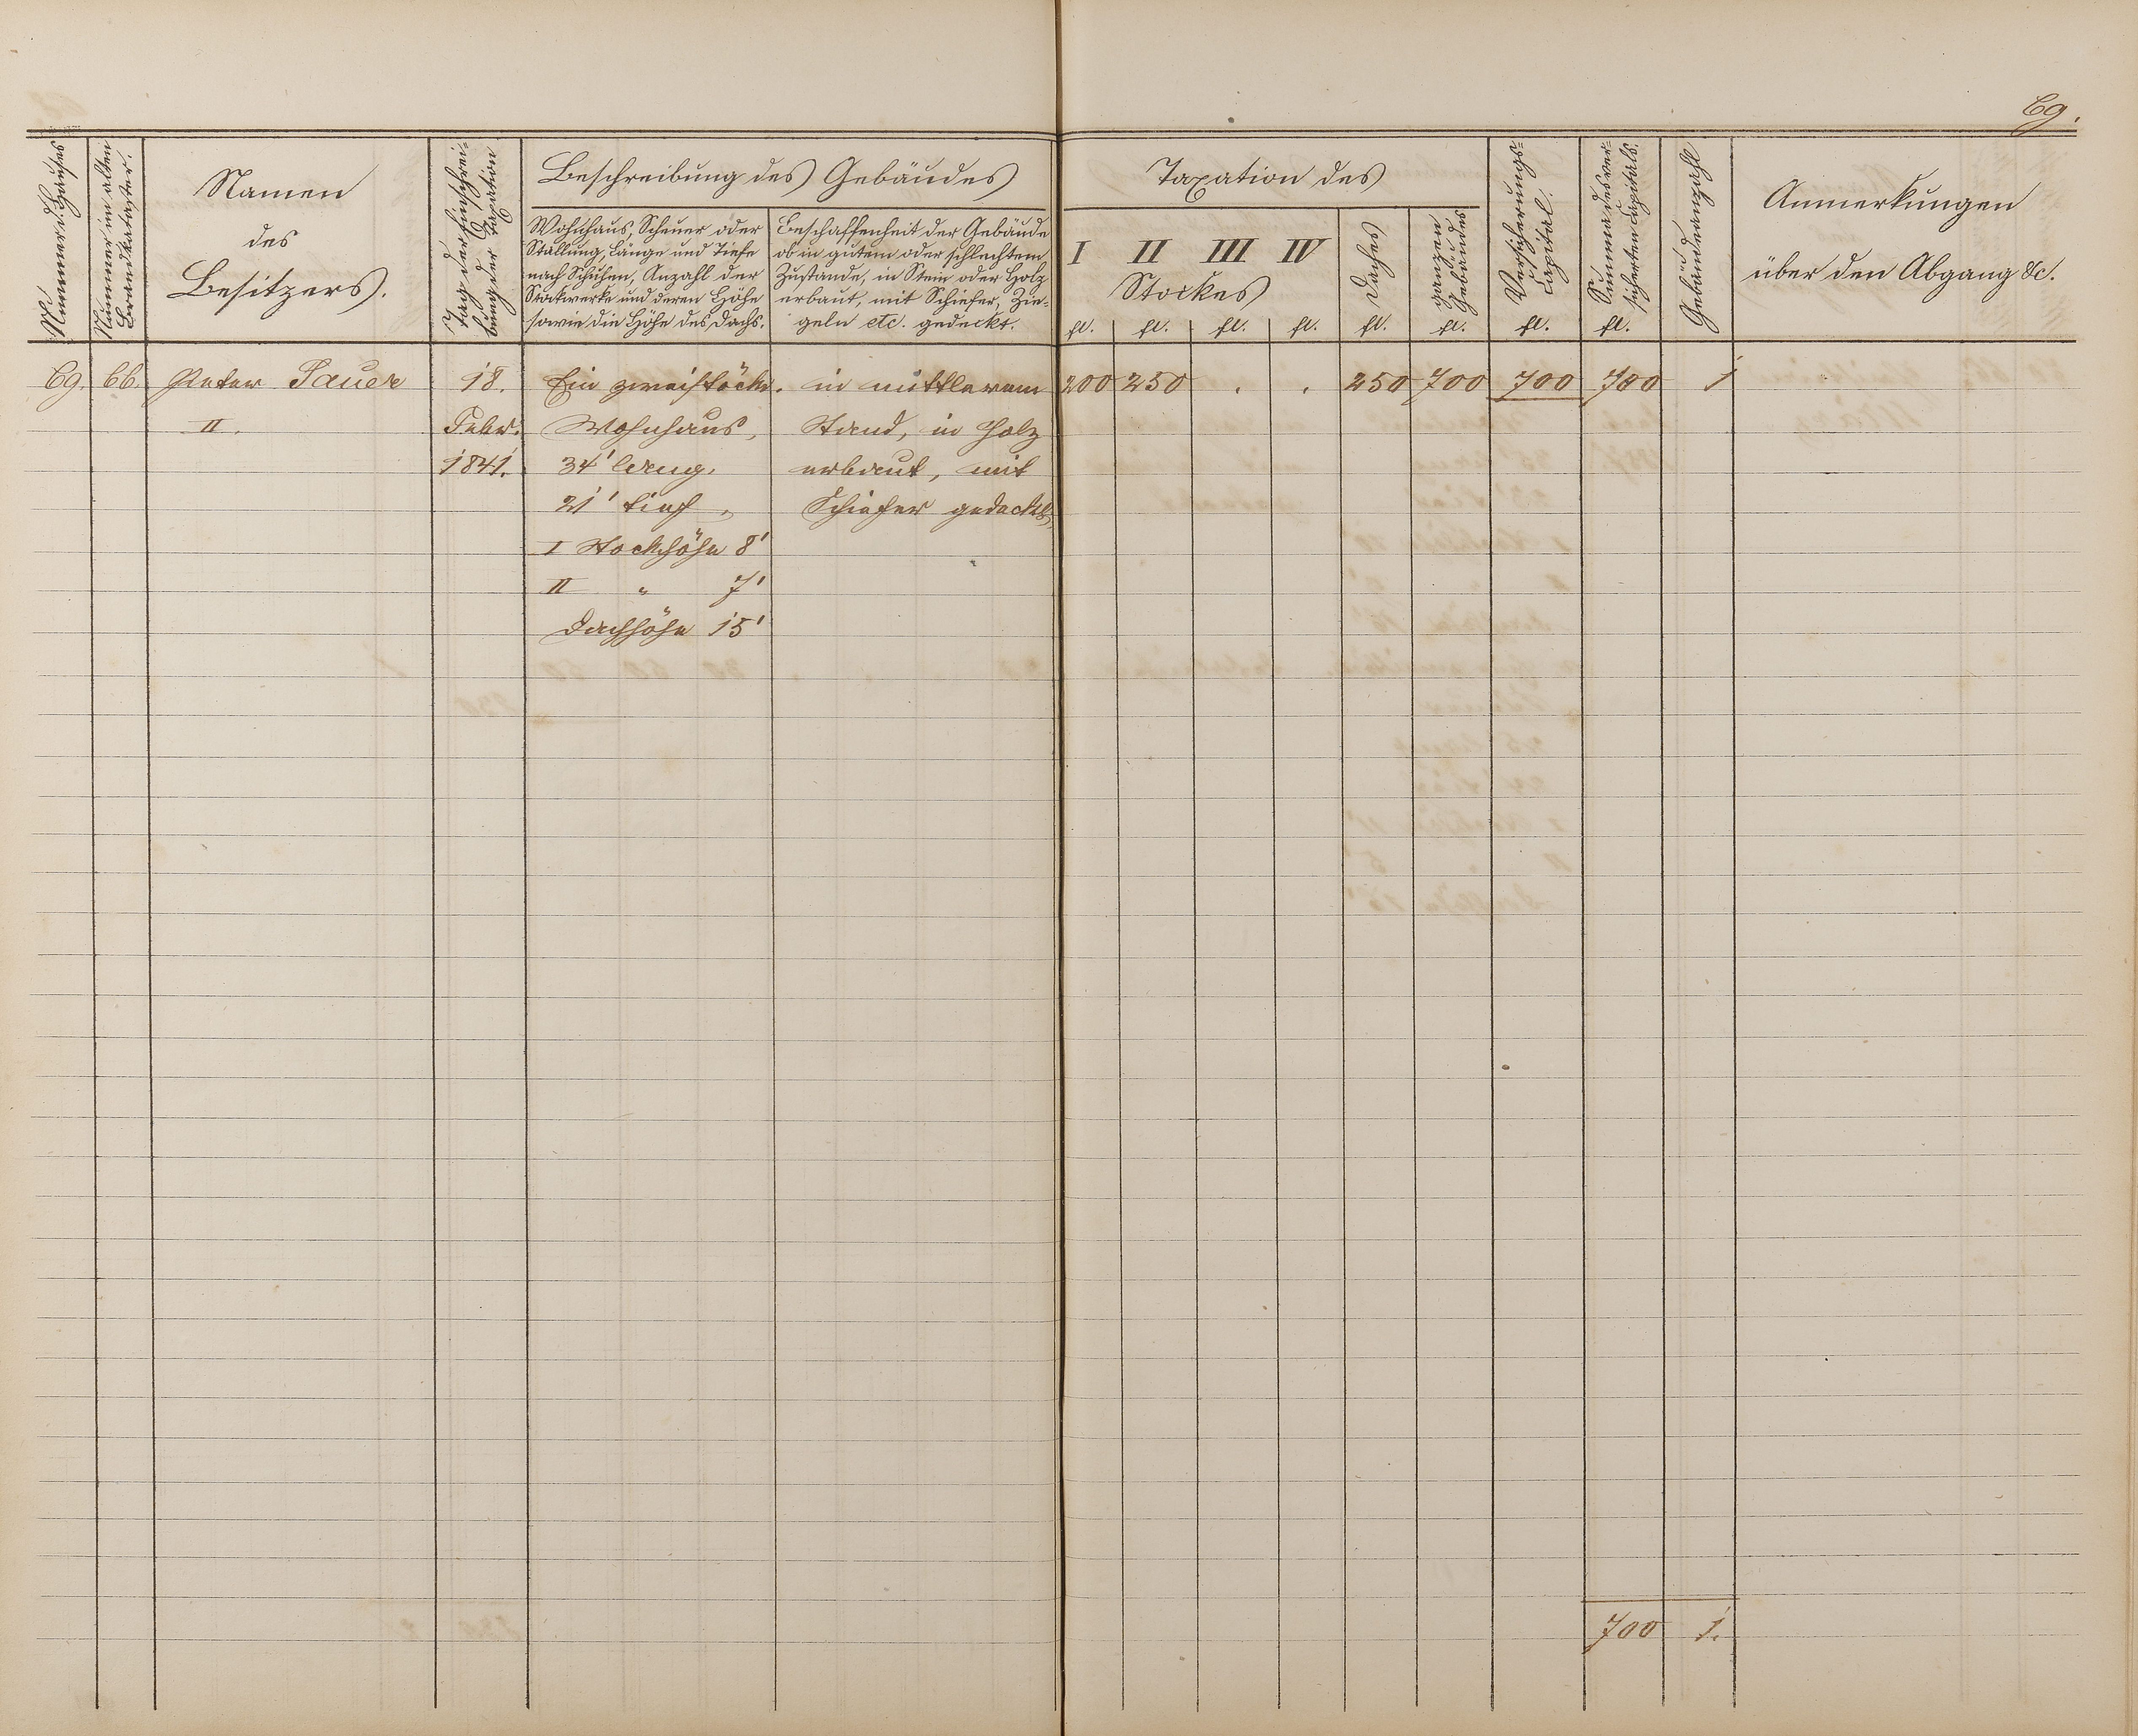 69.
Nummer d. Hauses
Nummer im alten
Brandkataster.
Namen
des
Besitzers.
Tag der Einschrei-
bung der Taxation
Beschreibung des Gebäudes
Wohnhaus, Scheuer oder
Stallung, Länge und Tiefe
nach Schuhen, Anzahl der
Stockwerke und deren Höhe
sowie die Höhe des Dachs.
Beschaffenheit der Gebäude
ob in gutem oder schlechtem
Zustande, in Stein oder Holz
erbaut, mit Schiefer, Zie-
geln etc. gedeckt.
Taxation des
I II III IV
Stockes
fl. fl. fl. fl.
Daches
fl.
ganzen
Gebäudes
fl.
Versicherungs-
Capital.
fl.
Summa des ver-
sicherten Capitals.
fl.
Gebäudeanzahl
Anmerkungen
über den Abgang &c.
69. 66. Peter Sauer 18. Ein zweistöck. in mittlerem 200 250 . . 250 700 700 700 1
II. Febr. Wohnhaus, Stand, in Holz
1841. 34' lang, erbaut, mit
21' tief, Schiefer gedeckt,
I Stockhöhe 8'
II " 7'
Dachhöhe 15'
700 1.